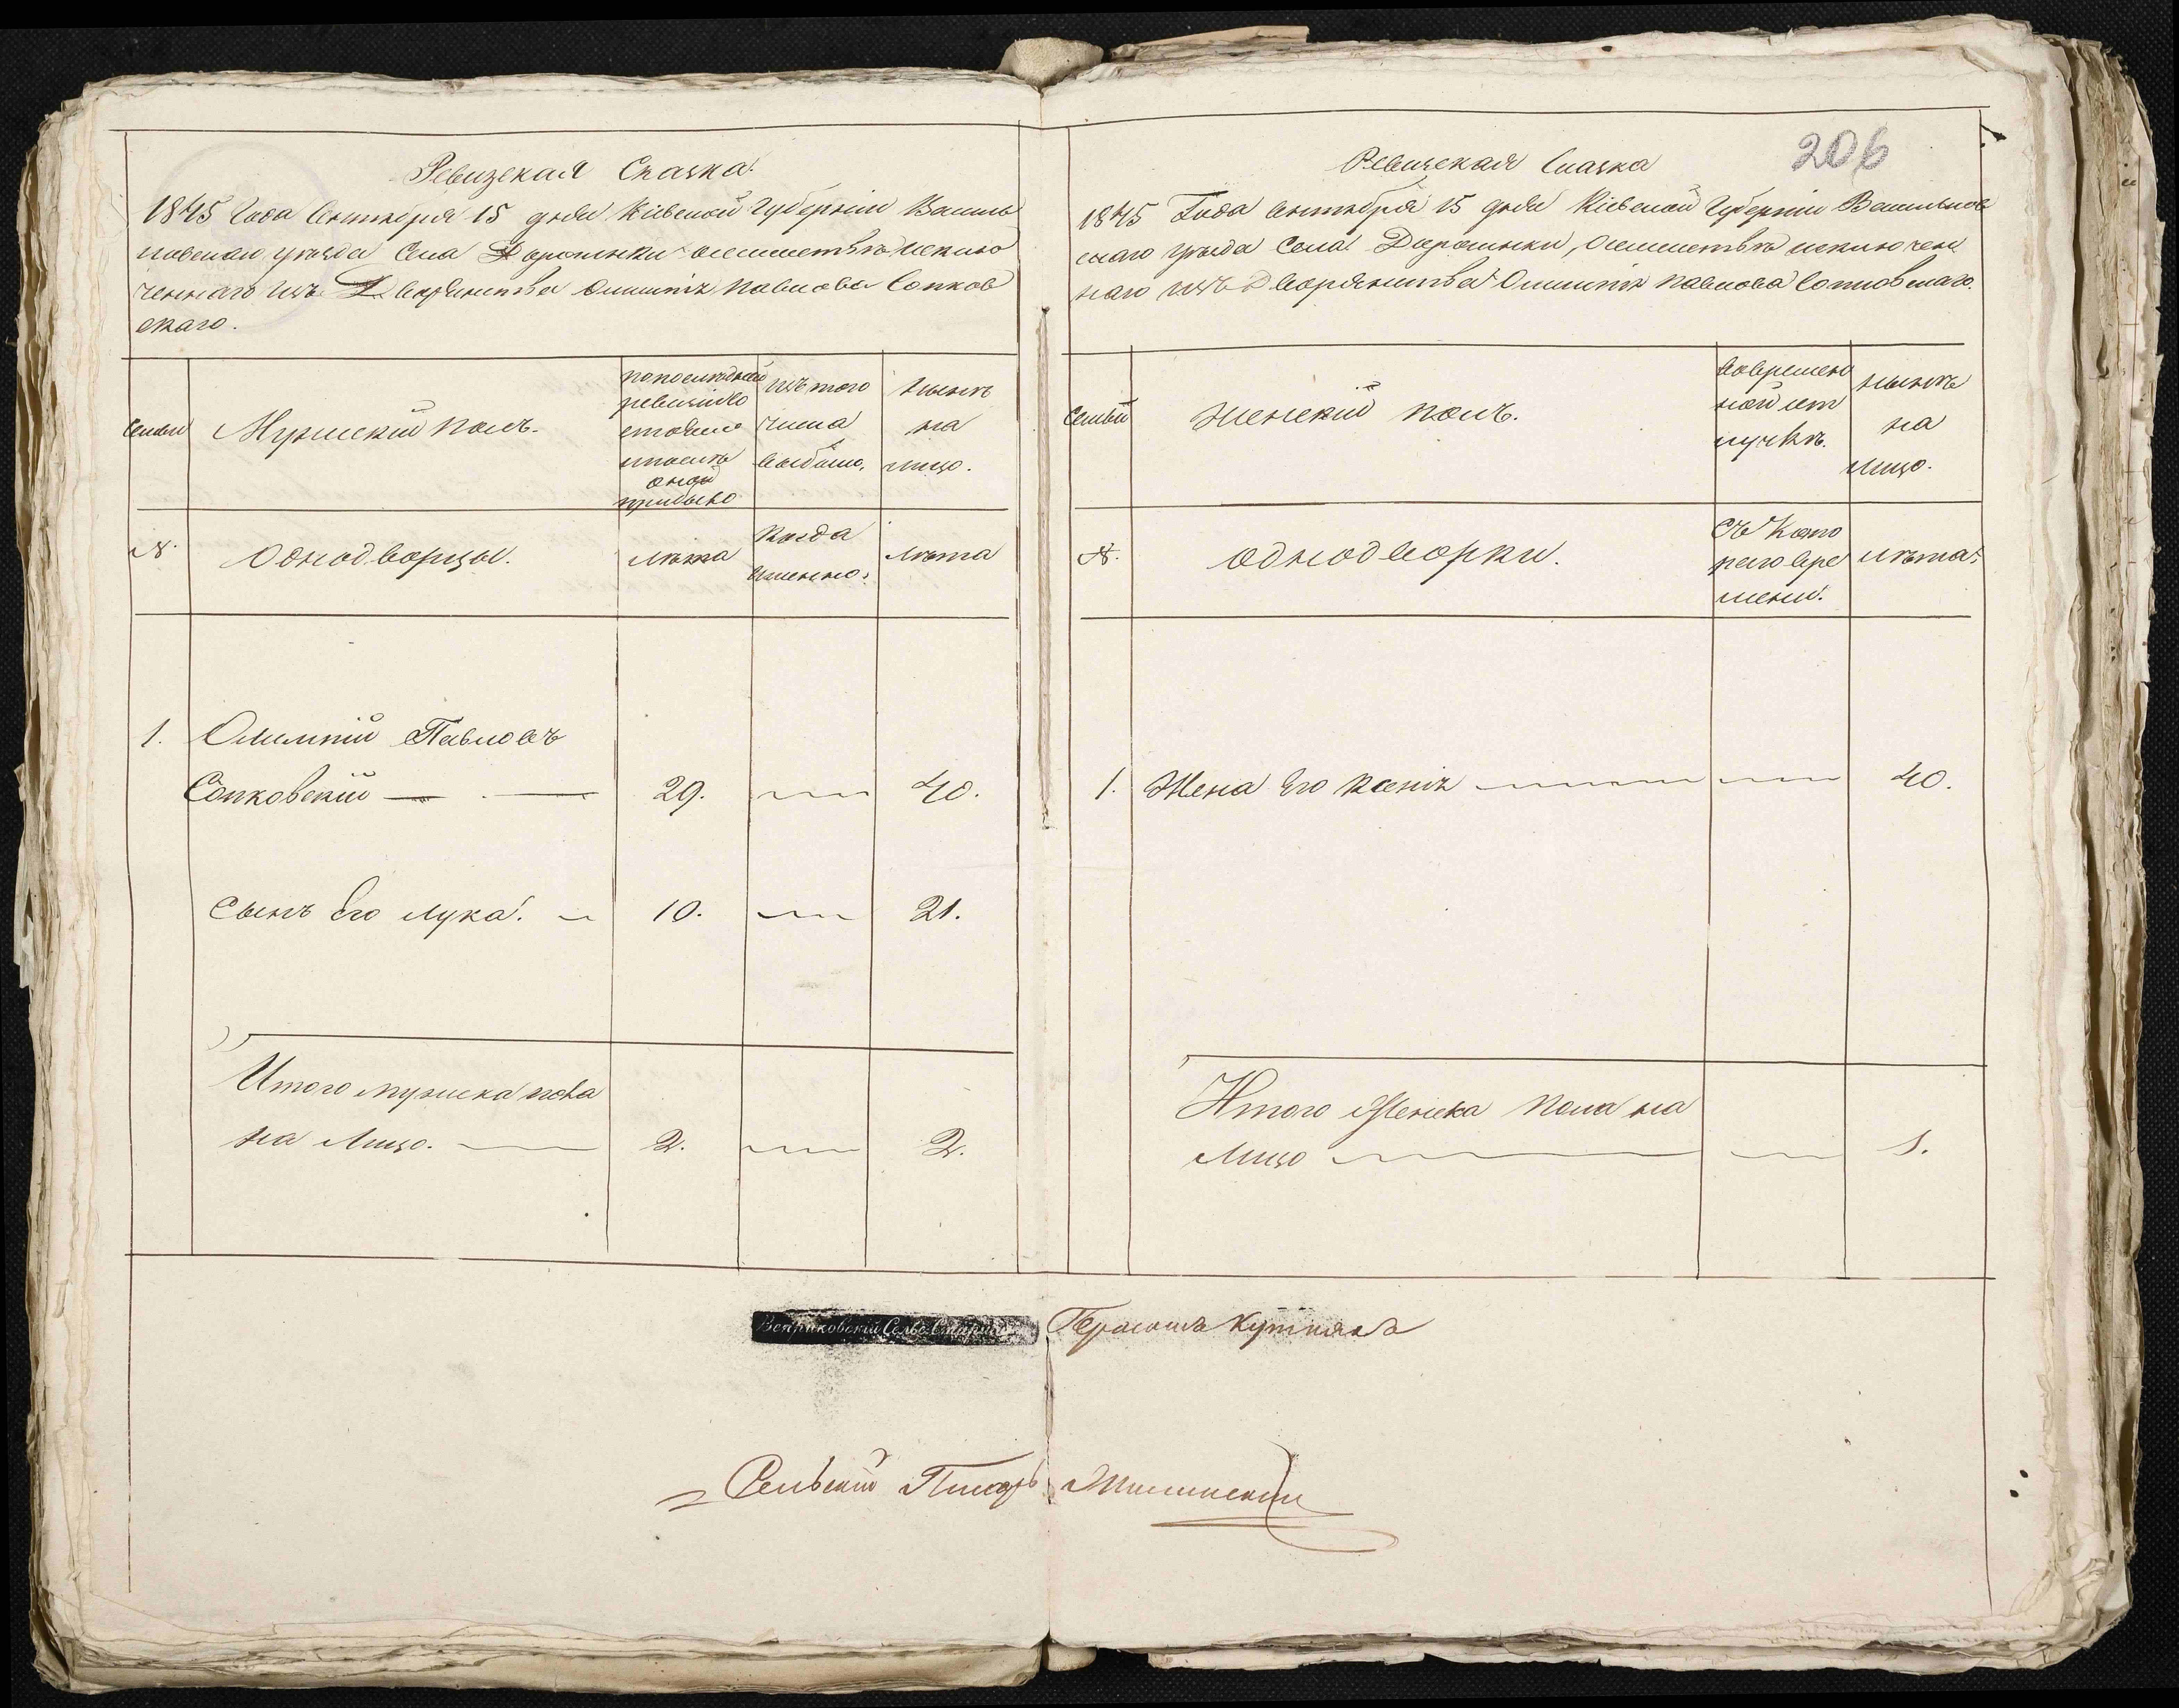 Ревизская Сказка.
1845 Года Сентября 15 дня Кіевской Губерніи Василь
ковскаго уѣзда Села Доролинки о семействѣ исклю
ченнаго изъ Дворянства Олимпія Павлова Сопков
скаго.
Семьи
Мужескій полъ.
по последней
ревизіи со
стояло
и после
оной
прибыло
изъ того
числа
выбыло.
нынѣ
на
лицо.
№.
Однодворцы.
Лѣта
Когда
именно.
Лѣта
1.
Олимпій Павловъ
Сопковскій
29.
40.
Сынъ Его Лука.
10.
21.
Итого мужеска пола
на Лицо.
2.
2.
206
Ревизская Сказка
1845 Года Сентября 15 дня Кіевской Губерніи Васильков
скаго уѣзда Села Доролинки, о семействѣ исключен
наго изъ Дворянства Олимпія Павлова Сопковскаго.
Семьи
Женский полъ.
во времен
ной от
лучкѣ.
нынѣ
на
лицо.
№.
Однодворки.
Съ Кото
раго вре
мени.
Лѣта.
1.
Жена Его Ксенія
40.
Итого Женска пола на
Лицо
1.
Веприковскій Сельс. Старши
Герасимъ
Сельскій Писарь